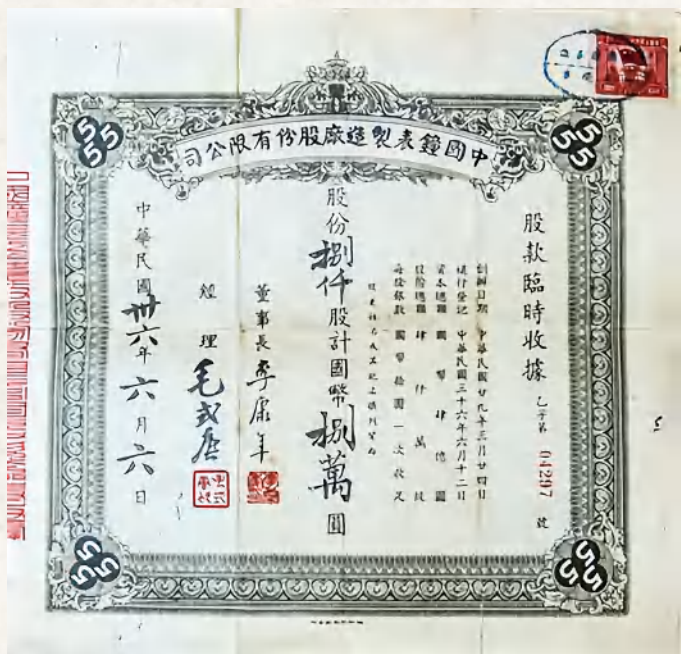 中國鐘表製造廠股份有限公司
股款臨時收據 乙字第 04297 號
創辦日期 中華民國廿九年三月廿四日
進行登記 中華民國三十六年六月十二日
資本總額 國幣肆億圓
股份總額 肆仟萬股
每股銀數 國幣拾圓一次收足
股份捌仟股計國幣捌萬圓
董事長 李康年
經理 毛式唐
中華民國卅六年六月六日
555
555
555
555